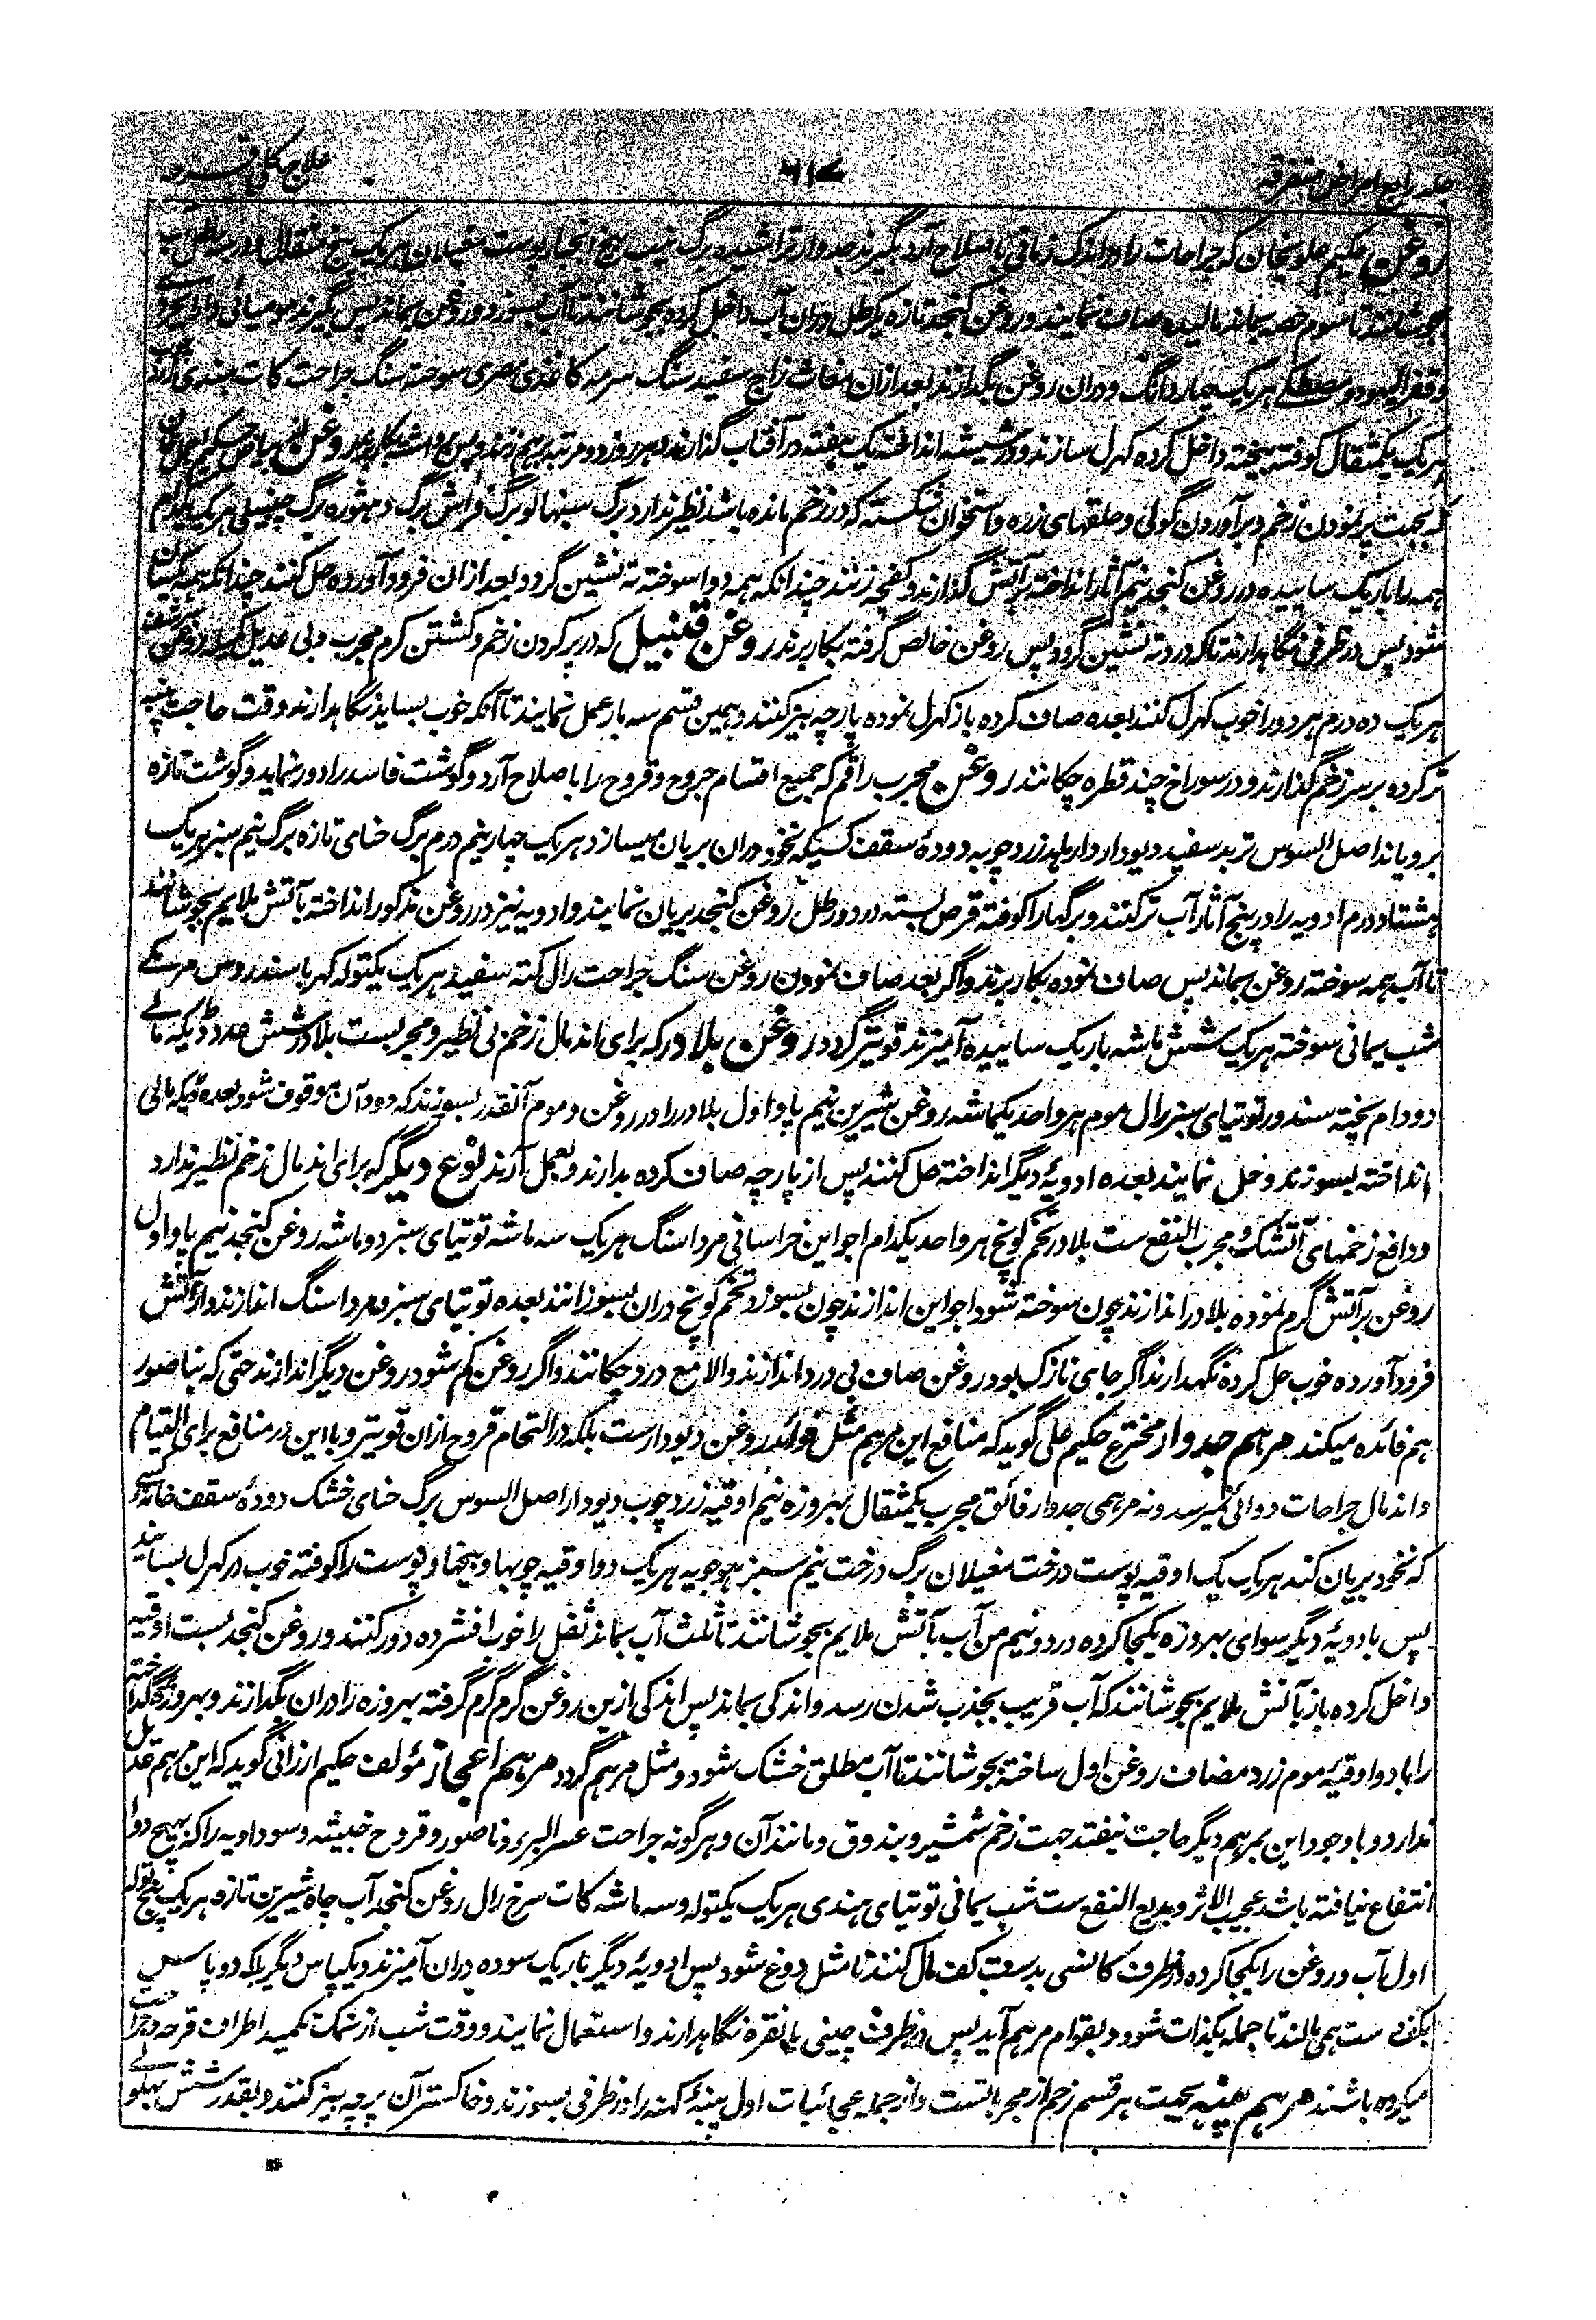 جلد رابع امراض متفرقه ۶۱۷ علاج کلی قرحه
روغن حکیم علویخان که جراحات را در اندک زمانی باصلاح آرد بگیرند جدوار تراشیده برگ نیب بیخ انجبار پوست مغیلان هریک پنج مثقال در سه رطل آب
بجوشانند تا سوم حصه بماند مالیده صاف نمایند و روغن کنجد تازه یکرطل دران آب داخل کرده بجوشانند تا آب بسوزد و روغن بماند پس بگیرند مومیائی
و قفر الیهود و مصطکی هریک چهار دانگ و دران روغن بگدازند بعد ازان مغاث زاج سفید سنگ سرمه کاغذی مصری سوخته سنگ جراحت کات هندی
هریک یکمثقال کوفته بیخته داخل کرده کهرل سازند و در شیشه انداخته یک هفته در آفتاب گذارند و هر روز دو مرتبه برهم زنند و پس برداشته بکار برند روغن از بیاض حکیم اجمل خان
که بجهت پر نمودن زخم و برآوردن گولی و حلقهای زره و استخوان شکسته که در زخم مانده باشد نظیر ندارد برگ سنبهالو برگ فراش برگ دهتوره برگ چنبیلی هریک یکدام
همه را باریک ساییده در روغن کنجد نیم آثار انداخته بر آتش گذارند و کفچه زنند چندانکه همه دوا سوخته ته نشین گردد بعد ازان فرود آورده حل کنند چندانکه همه یکسان
شود پس در ظرفی نگاهدارند تا که درد ته نشین گردد پس روغن خالص گرفته بکار برند روغن قنبیل که در پر کردن زخم و کشتن کرم مجرب و بی عدیل روغن
هریک ده درم هر دو را خوب کهرل کنند بعده صاف کرده باز کهرل نموده پارچه بیز کنند و همین قسم سه بار عمل نمایند تا آنکه خوب بساید نگاهدارند وقت حاجت پنبه
تر کرده بر سر زخم گذارند و در سوراخ چند قطره چکانند روغن مجرب راقم که جمیع اقسام جروح و قروح را باصلاح آرد و گوشت فاسد را دور نماید و گوشت تازه
برویاند اصل السوس تربد سفید دیودار دارهلد زردچوبه دودهٔ سقف کسیکه نخود دران بریان میسازد هریک چهار نیم درم برگ حنای تازه برگ نیم سبز هریک
هشتاد درم ادویه را در پنج آثار آب تر کنند و برگها را کوفته قرص بسته در دو رطل روغن کنجد بریان نمایند و ادویه نیز در روغن مذکور انداخته بآتش ملایم بجوشانند
تا آب همه سوخته روغن بماند پس صاف نموده بکار برند و اگر بعد صاف نمودن روغن سنگ جراحت رال کته سفید هریک یکتوله کهربا سندروس مرمکی
شب یمانی سوخته هریک شش ماشه باریک ساییده آمیزند قویتر گردد روغن بلادر که برای اندمال زخم بی نظیر و مجربست بلادر شش عدد
دو دام پخته سندور توتیای سبز رال موم هر واحد یکماشه روغن شیرین نیم پاو اول بلادر را در روغن و موم آنقدر بسوزند که دود آن موقوف شود بعده
انداخته بسوزند و حل نمایند بعده ادویهٔ دیگر انداخته حل کنند پس از پارچه صاف کرده بدارند و بعمل آرند نوع دیگر که برای اندمال زخم نظیر ندارد
و دافع زخمهای آتشک و مجرب النفع ست بلادر تخم گونچ هر واحد یکدام اجواین خراسانی مرداسنگ هریک سه ماشه توتیای سبز دو ماشه روغن کنجد نیم پاو اول
روغن بر آتش گرم نموده بلادر اندازند چون سوخته شود اجواین اندازند چون بسوزد تخم گونچ دران بسوزانند بعده توتیای سبز و مرداسنگ اندازند و از آتش
فرود آورده خوب حل کرده نگهدارند اگر جای نازک بود روغن صاف بی درد اندازند والا مع درد چکانند و اگر روغن کم شود روغن دیگر اندازند حتی که بناصور
هم فائده میکند مرهم جدوار مخترع حکیم علی گوید که منافع این مرهم مثل فوائد روغن دیودارست بلکه در التحام قروح ازان قویتر و با این در منافع برای التیام
و اندمال جراحات دوائی نمیرسد و نه مرهمی جدوار فائق مجرب یکمثقال بهروزه نیم اوقیه زردچوب دیودار اصل السوس برگ حنای خشک دودهٔ سقف خانه
که نخود بریان کند هریک یک اوقیه پوست درخت مغیلان برگ درخت نیم سبز هوجویه هریک دو اوقیه چوبها و بیخها و پوست را کوفته خوب در کهرل بسایند
پس با دویهٔ دیگر سوای بهروزه یکجا کرده در دو نیم من آب بآتش ملایم بجوشانند تا ثلث آب بماند ثفل را خوب افشرده دور کنند و روغن کنجد بست اوقیه
داخل کرده باز بآتش ملایم بجوشانند که آب قریب بجذب شدن رسد و اندکی بماند پس اندکی ازین روغن گرم گرم گرفته بهروزه را دران بگدازند و بهروزه گداخته
را با دو اوقیه موم زرد مضاف روغن اول ساخته بجوشانند تا آب مطلق خشک شود و مثل مرهم گردد مرهم اعجاز مؤلف حکیم ارزانی گوید که این مرهم عدیل
ندارد و با وجود این بمرهم دیگر حاجت نیفتد جهت زخم شمشیر و بندوق و مانند آن و هرگونه جراحت عسر البرء و ناصور و قروح خبیثه و سوداویه را که بهیچ دوا
انتفاع نیافته باشد عجیب الاثر و بدیع النفع ست شب یمانی توتیای هندی هریک یکتوله و سه ماشه کات سرخ رال روغن کنجد آب چاه شیرین تازه هریک پنج توله
اول آب و روغن را یکجا کرده در ظرف کانسی بدست کف مال کنند تا مثل دوغ شود پس ادویهٔ دیگر باریک سوده دران آمیزند و یکپاس دیگر بلکه دو پاس
بکف دست همی مالند تا جمله یکذات شود و بقوام مرهم آید پس در ظرف چینی یا نقره نگاهدارند و استعمال نمایند و وقت شب از نمک تکمید اطراف قرحه و جراحت
میکرده باشند مرهم پنبه بجهت هر قسم زخم از مجرباتست و از جمله عجائبات اول پنبهٔ کهنه را در ظرفی بسوزند و خاکستر آن پرچه بیز کنند و بقدر شش پهلو